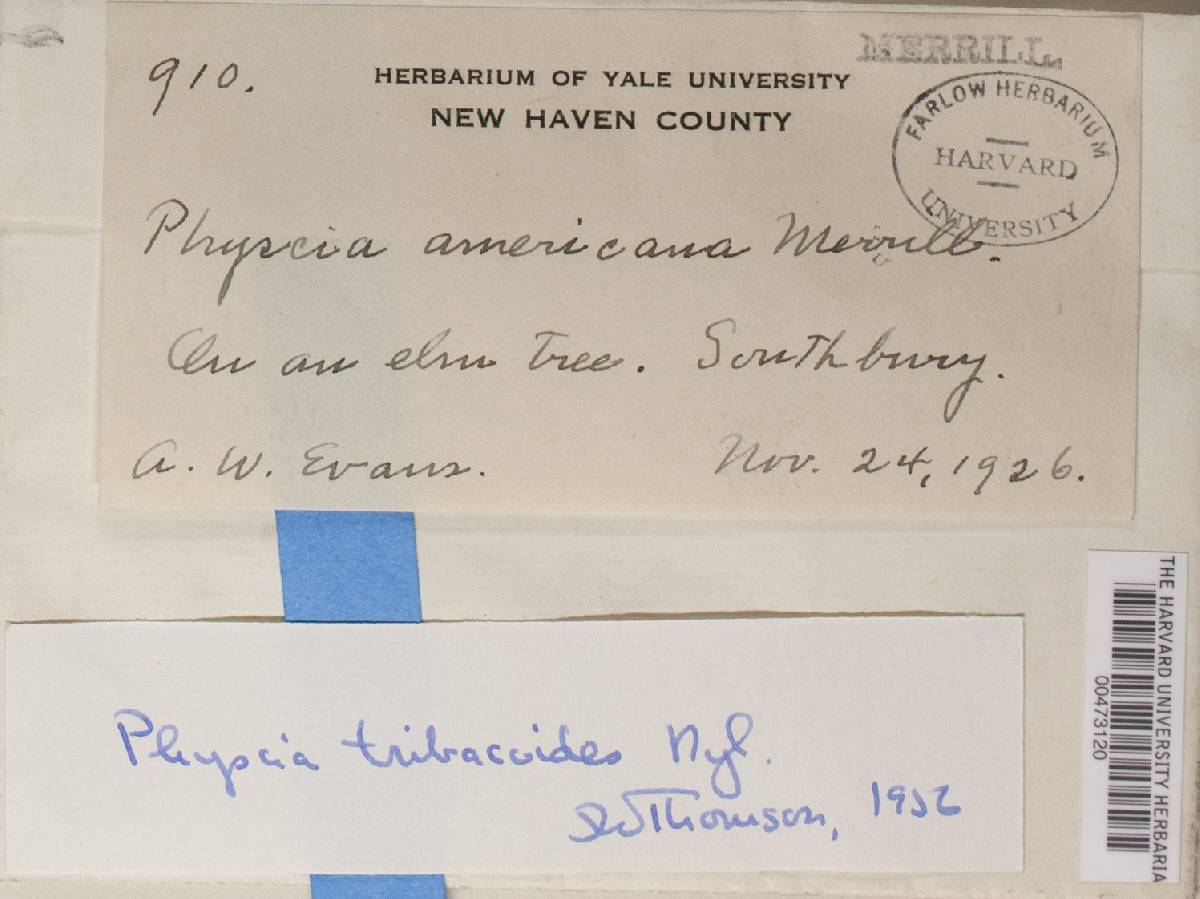 MERRILL.
910.
HERBARIUM OF YALE UNIVERSITY
NEW HAVEN COUNTY
FARLOW HERBARIUM
HARVARD
UNIVERSITY
Physcia americana Merrill.
On an elm tree. Southbury.
A. W. Evans.
Nov. 24, 1926.
THE HARVARD UNIVERSITY HERBARIA
00473120
Physcia tribacoides Nyl.
JWThomson, 1952